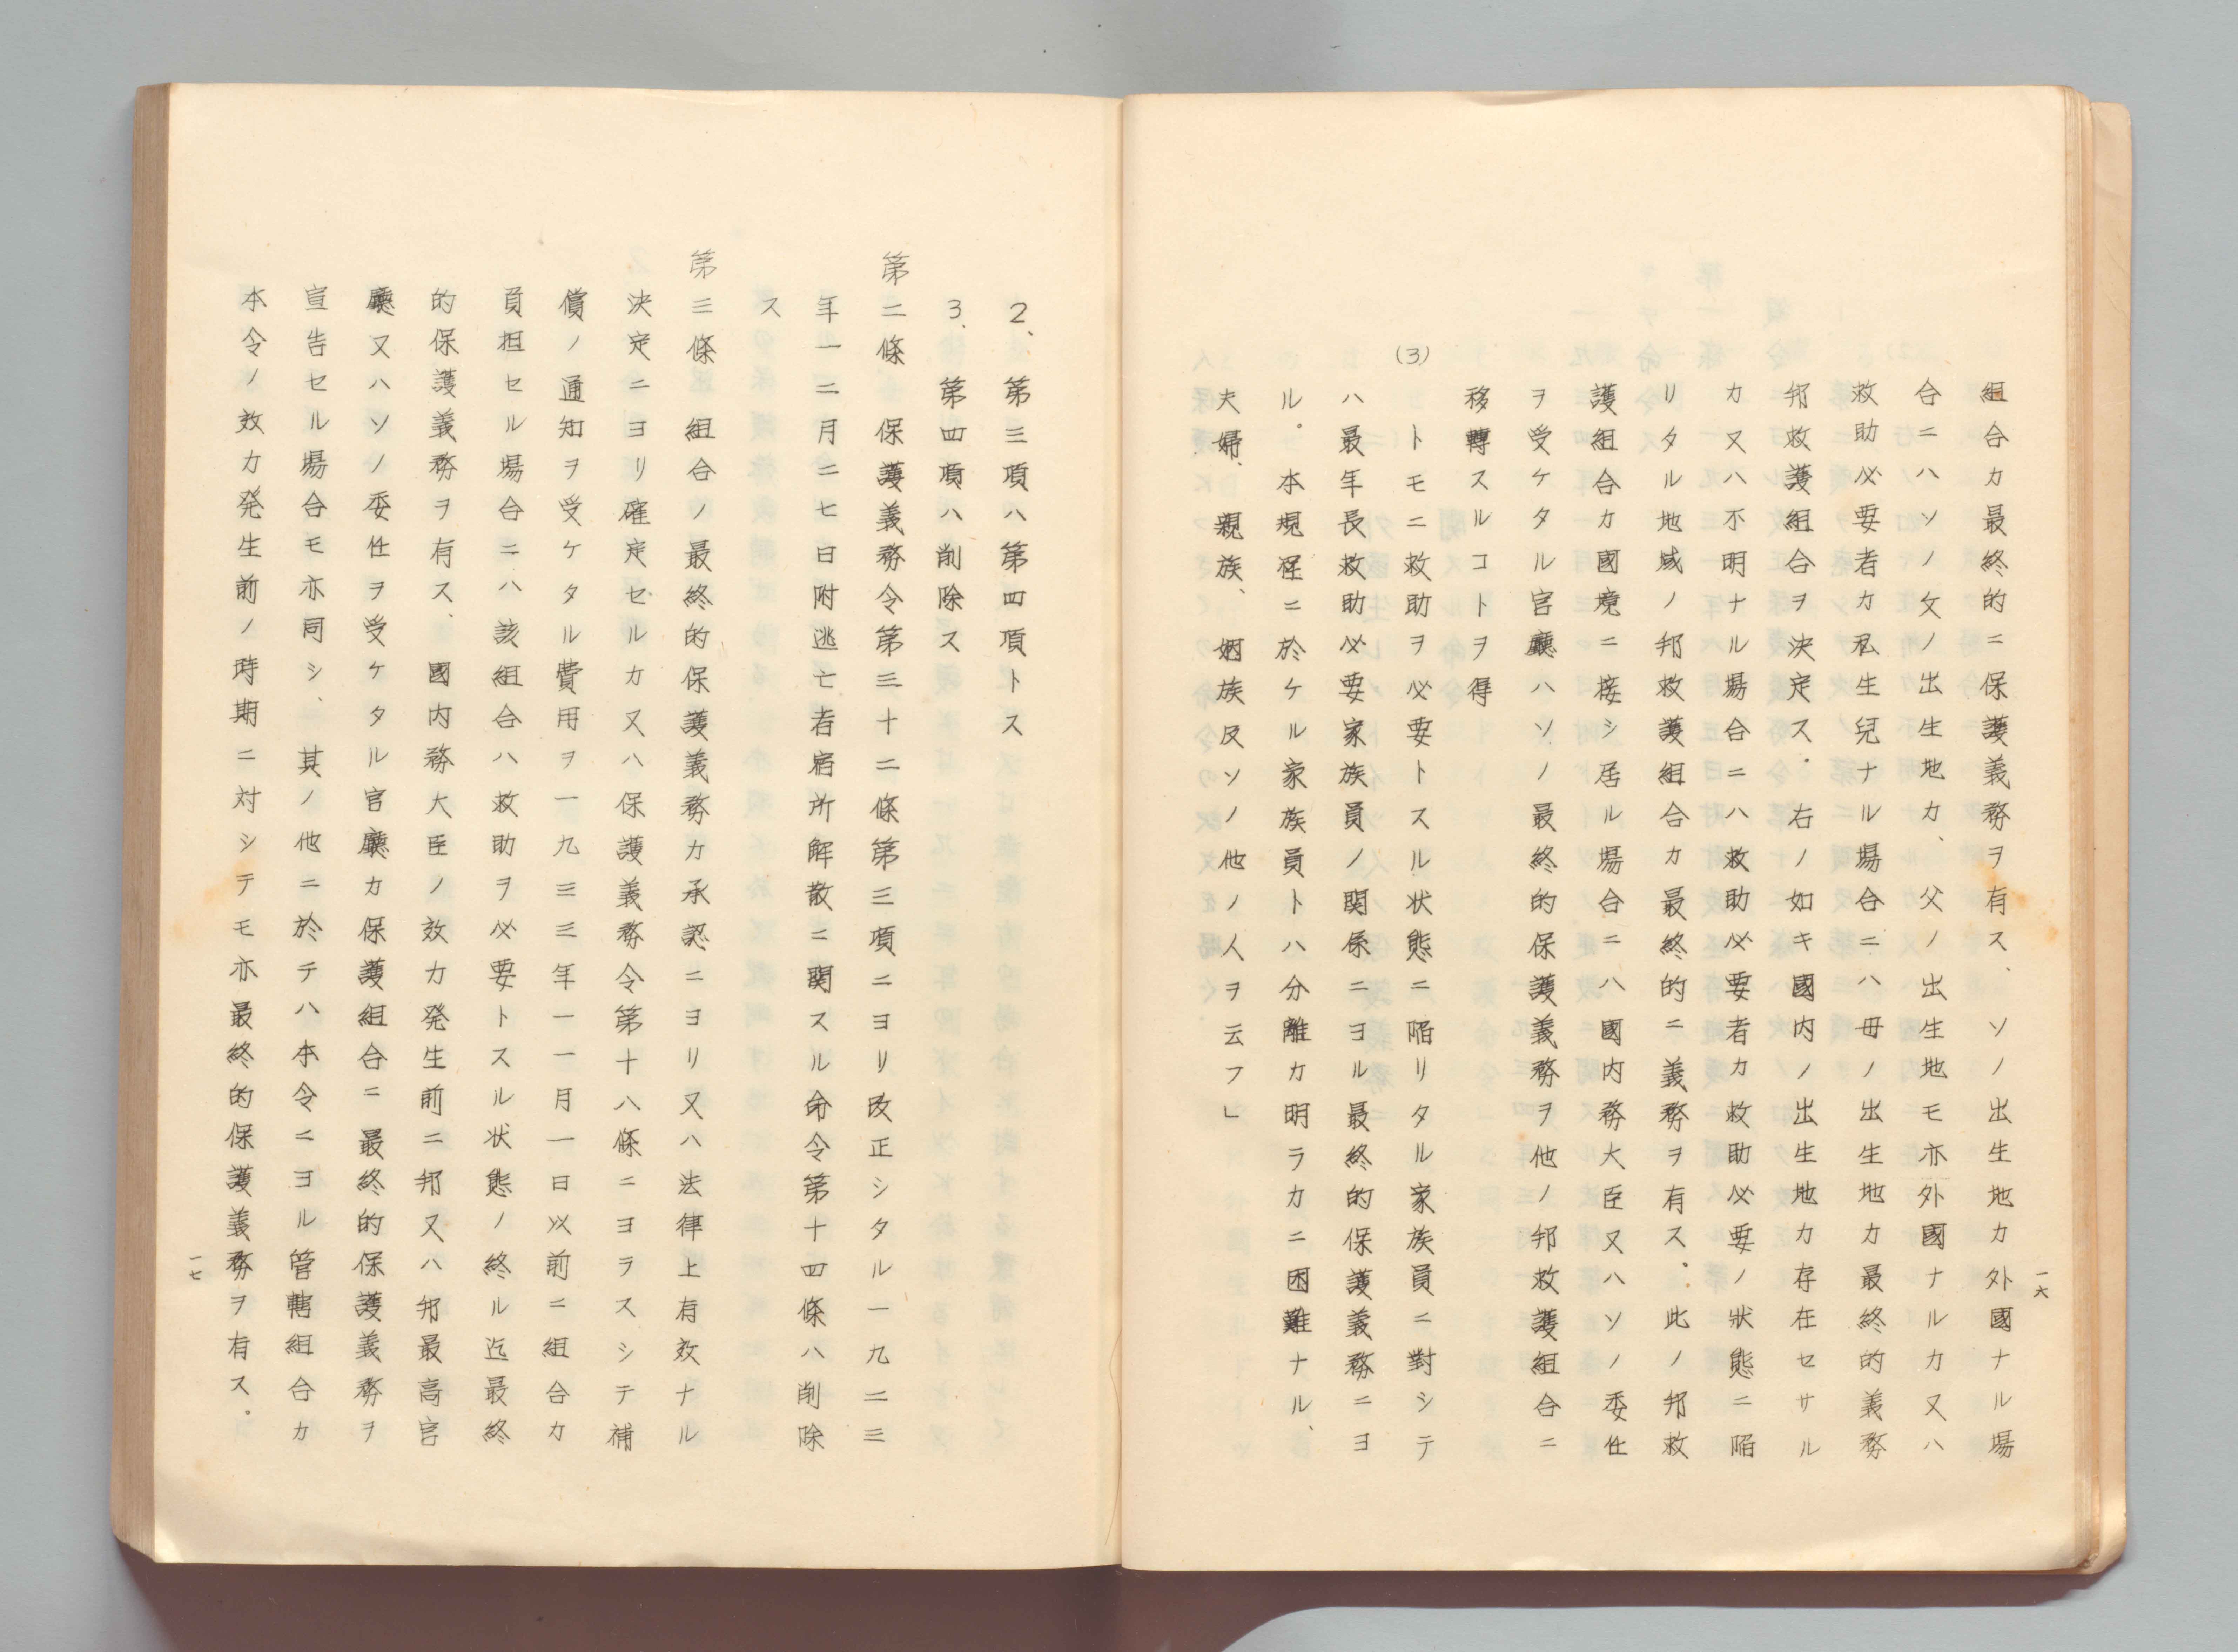 組合カ最終的ニ保護義務ヲ有ス、ソノ出生地カ外國ナル場
合ニハソノ父ノ出生地カ、父ノ出生地モ亦外國ナルカ又ハ
救助必要者カ私生兒ナル場合ニハ毋ノ出生地カ最終的義務
邦救護組合ヲ決定ス。右ノ如キ國内ノ出生地カ存在セサル
カ又ハ不明ナル場合ニハ救助必要者カ救助必要ノ狀態ニ陥
リタル地域ノ邦救護組合カ最終的ニ義務ヲ有ス。此ノ邦救
護組合カ國境ニ接シ居ル場合ニハ國内務大臣又ハソノ委任
ヲ受ケタル官廳ハソノ最終的保護義務ヲ他ノ邦救護組合ニ
移轉スルコトヲ得
(3) トモニ救助ヲ必要トスル状態ニ陥リタル家族員ニ對シテ
ハ最年長救助必要家族員ノ関係ニヨル最終的保護義務ニヨ
ル。本規程ニ於ケル家族員トハ分離カ明ラカニ困難ナル、
夫婦、親族、姻族反ソノ他ノ人ヲ云フ」
一六
2、第三項ハ第四項トス
3、第四項ハ削除ス
第二條 保護義務令第三十二條第三項ニヨリ改正シタル一九二三
年一二月二七日附逃亡者宿所解散ニ関スル命令第十四條ハ削除
ス
第三條 組合ノ最終的保護義務カ承認ニヨリ又ハ法律上有效ナル
決定ニヨリ確定セルカ又ハ保護義務令第十八條ニヨラスシテ補
償ノ通知ヲ受ケタル費用ヲ一九三三年一一月一日以前ニ組合カ
負担セル場合ニハ該組合ハ救助ヲ必要トスル状態ノ終ル迄最終
的保護義務ヲ有ス、國内務大臣ノ效力発生前ニ邦又ハ邦最高官
廳又ハソノ委任ヲ受ケタル官廳カ保護組合ニ最終的保護義務ヲ
宣告セル場合モ亦同シ、其ノ他ニ於テハ本令ニヨル管轄組合カ
本令ノ效力発生前ノ時期ニ対シテモ亦最終的保護義務ヲ有ス。
一七